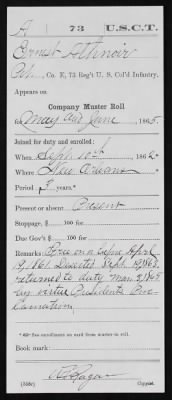 A 73 U.S.C.T.
Ernest
Pvt., Co. E, 73 Reg't U. S. Col'd Infantry.
Appears on
Company Muster Roll
for May and June, 1865.
Joined for duty and enrolled:
When Sept. 186 *
Where New Orleans
Period 3 years.*
Present or absent Present
Stoppage, $ 100 for
Due Gov't $ 100 for
Remarks: Free on or before April
19, 1861. Deserted Sept.
returned to duty
by virtue Presidents Proc
lamation
*See enrollment on card from muster-in roll.
Book mark:
Copyist.